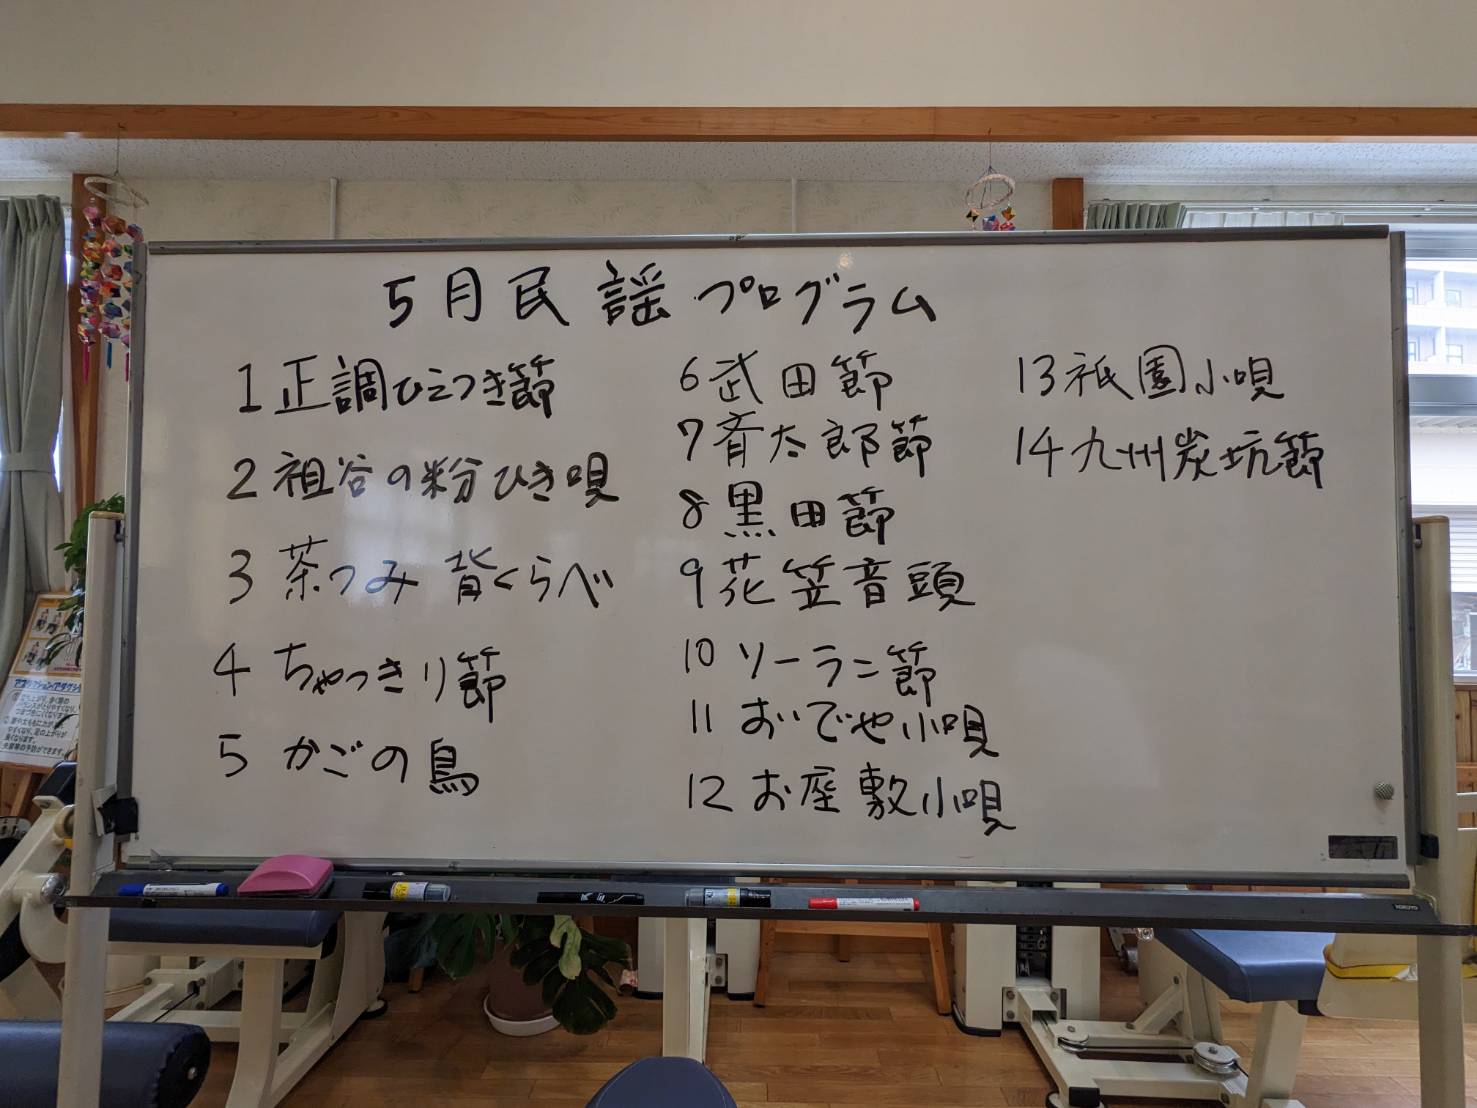 5月民謡プログラム
1 正調ひえつき節
2 祖谷の粉ひき唄
3 茶つみ 背くらべ
4 ちゃっきり節
5 かごの鳥
6 武田節
7 斉太郎節
8 黒田節
9 花笠音頭
10 ソーラン節
11 おいでや小唄
12 お座敷小唄
13 祇園小唄
14 九州炭坑節
KOKUYO